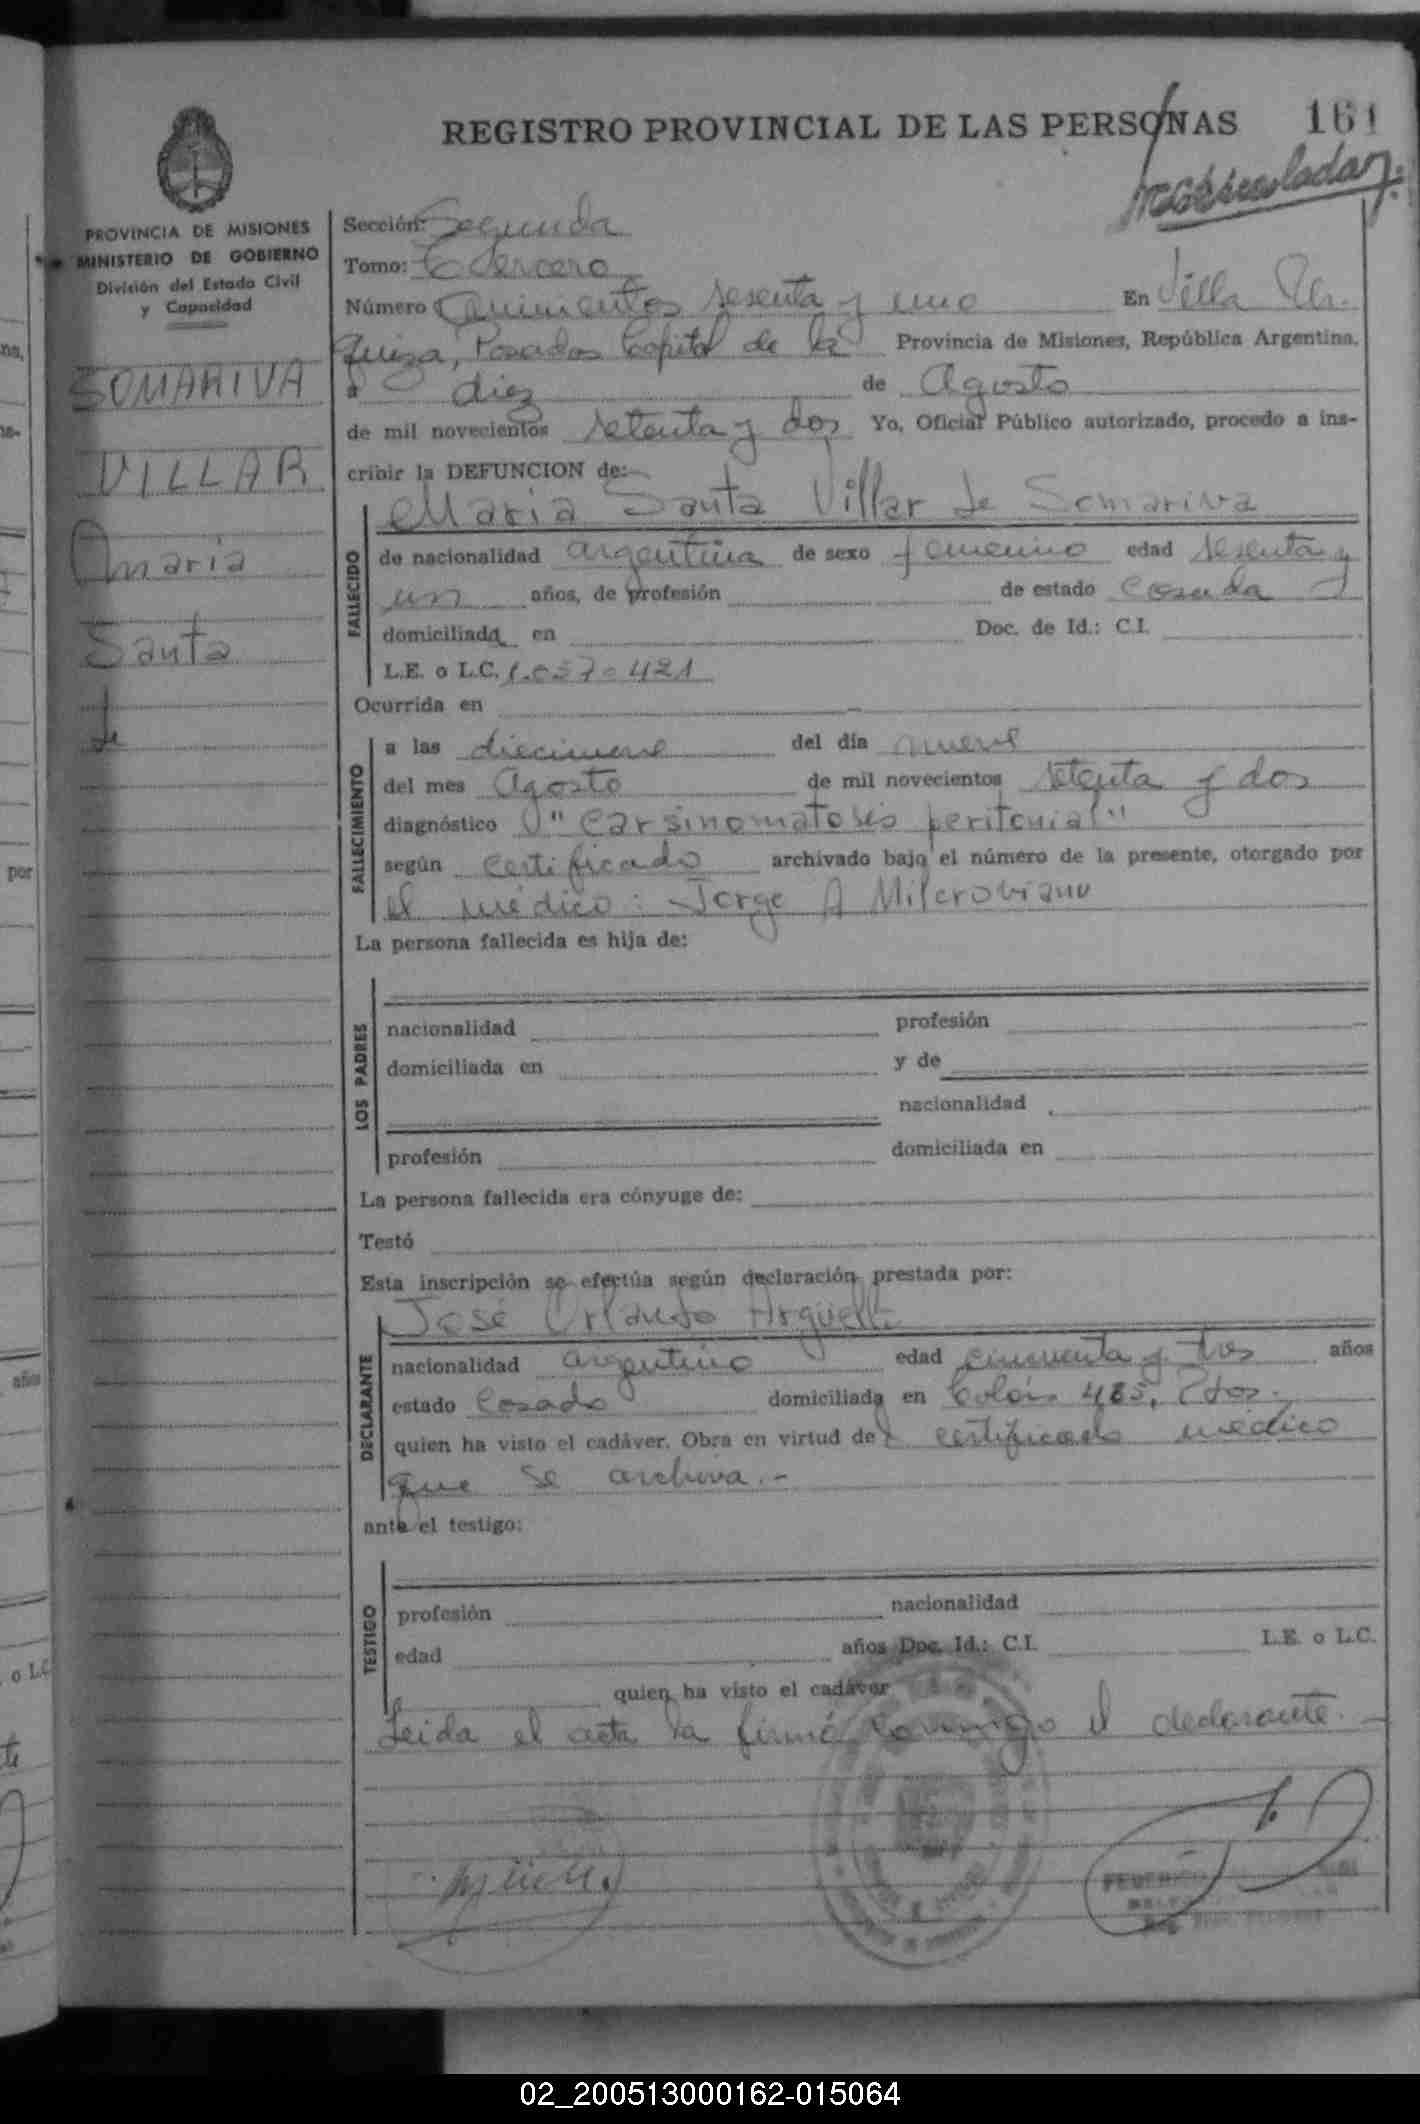 REGISTRO PROVINCIAL DE LAS PERSONAS 161
PROVINCIA DE MISIONES
MINISTERIO DE GOBIERNO
División del Estado Civil
y Capacidad
SOMARIVA
VILLAR
Maria
Santa
de
Sección: Segunda
Tomo: Tercero
Número Quinientos sesenta y uno En Villa Ur-
quiza, Posadas Capital de la Provincia de Misiones, República Argentina,
a diez de Agosto
de mil novecientos setenta y dos Yo, Oficial Público autorizado, procedo a ins-
cribir la DEFUNCION de:
Maria Santa Villar de Somariva
FALLECIDO
de nacionalidad argentina de sexo femenino edad sesenta y
un años, de profesión de estado casada
domiciliada en Doc. de Id.: C.I.
L.E. o L.C.
Ocurrida en
FALLECIMIENTO
a las diecinueve del día nueve
del mes Agosto de mil novecientos setenta y dos
diagnóstico "Carsinomatosis peritonial"
según certificado archivado bajo el número de la presente, otorgado por
el médico: Jorge A
La persona fallecida es hija de:
LOS PADRES
nacionalidad profesión
domiciliada en y de
nacionalidad
profesión domiciliada en
La persona fallecida era cónyuge de:
Testó
Esta inscripción se efectúa según declaración prestada por:
José Orlando
DECLARANTE
nacionalidad argentino edad cincuenta y tres años
estado Casado domiciliada en Colón 485, Pdas.
quien ha visto el cadáver. Obra en virtud del certificado médico
que se archiva.-
ante el testigo:
TESTIGO
profesión nacionalidad
edad años Doc. Id.: C.I. L.E. o L.C.
quien ha visto el cadáver
Leida el acta la firmó conmigo el declarante.-
02_200513000162-015064